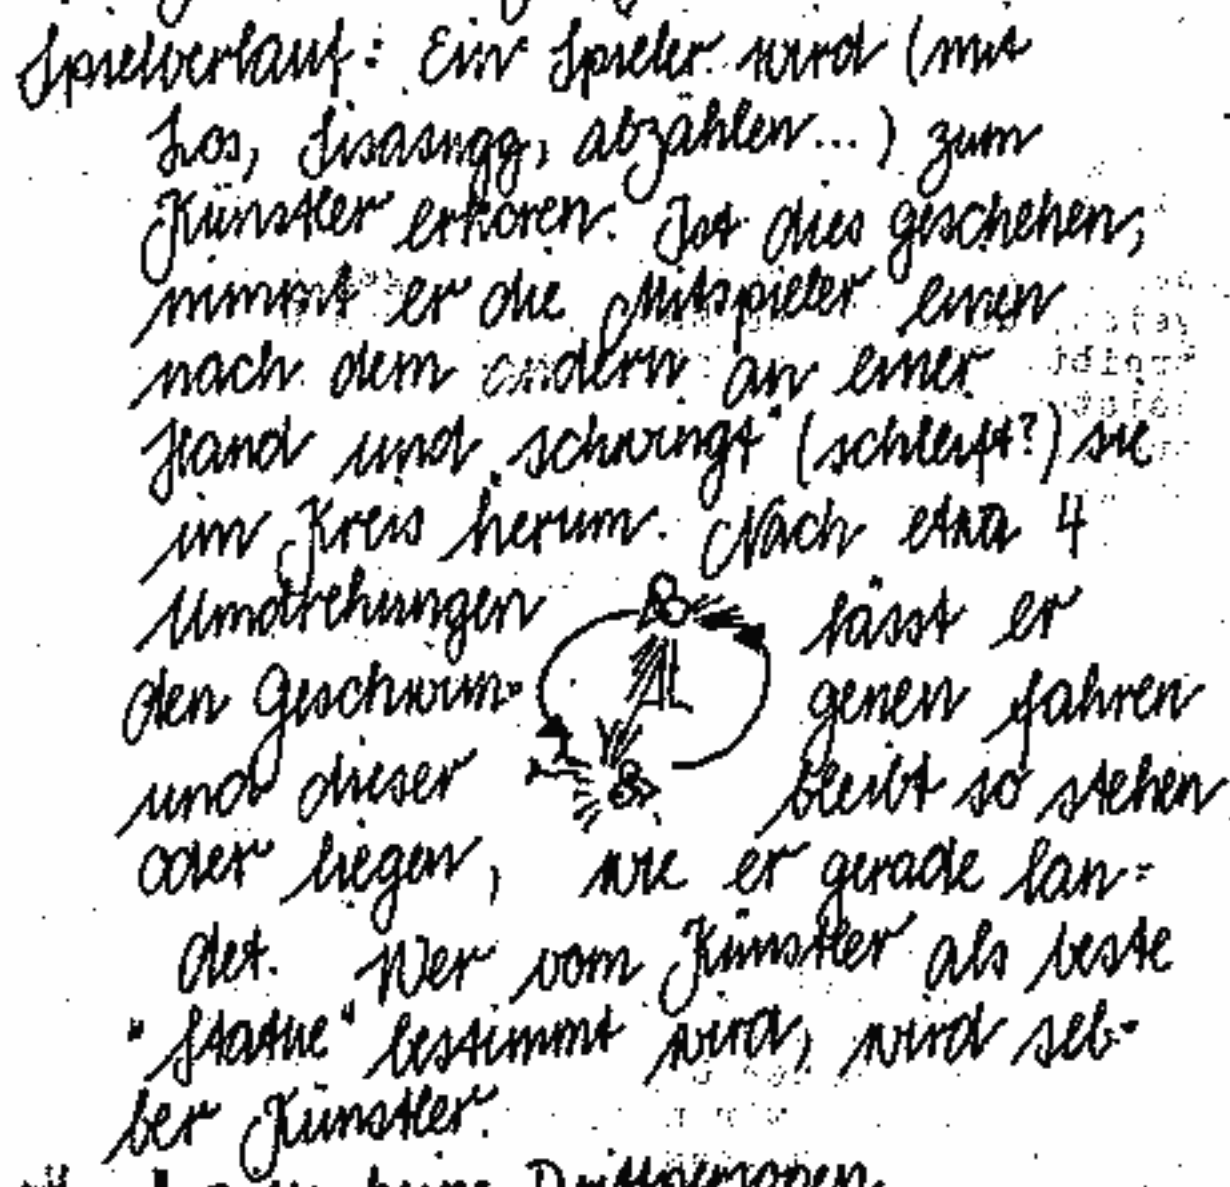 Spielverlauf: Ein Spieler wird (mit
Los, Sisasugg, abzählen...) zum
Künstler erkoren. Ist dies geschehen,
nimmt er die Mitspieler einen
nach dem andern an einer
Hand und schwingt (schleift?) sie
im Kreis herum. Nach etwa 4
Umdrehungen lässt er
den Geschwun- genen fahren
und dieser bleibt so stehen
oder liegen, wie er gerade lan=
det. Wer vom Künstler als beste
"Statue" bestimmt wird, wird sel-
ber Künstler.
keine